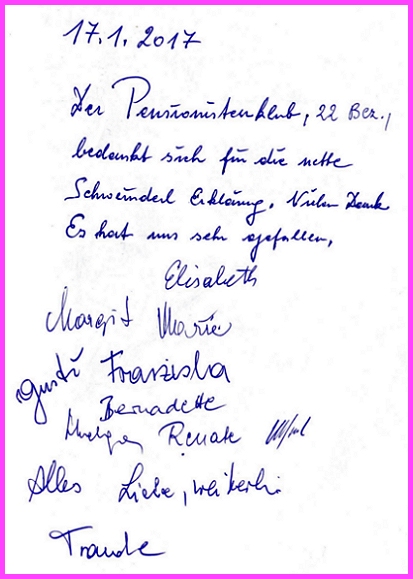 17.1.2017
Der Pensionistenklub, 22 Bez.,
bedankt sich für die nette
Schweinderl Erklärung. Vielen Dank
Es hat uns sehr gefallen.
Elisabeth
Margit Marie
Gusti Franziska
Bernadette
Renate
Alles Liebe, weiterhin
Traude